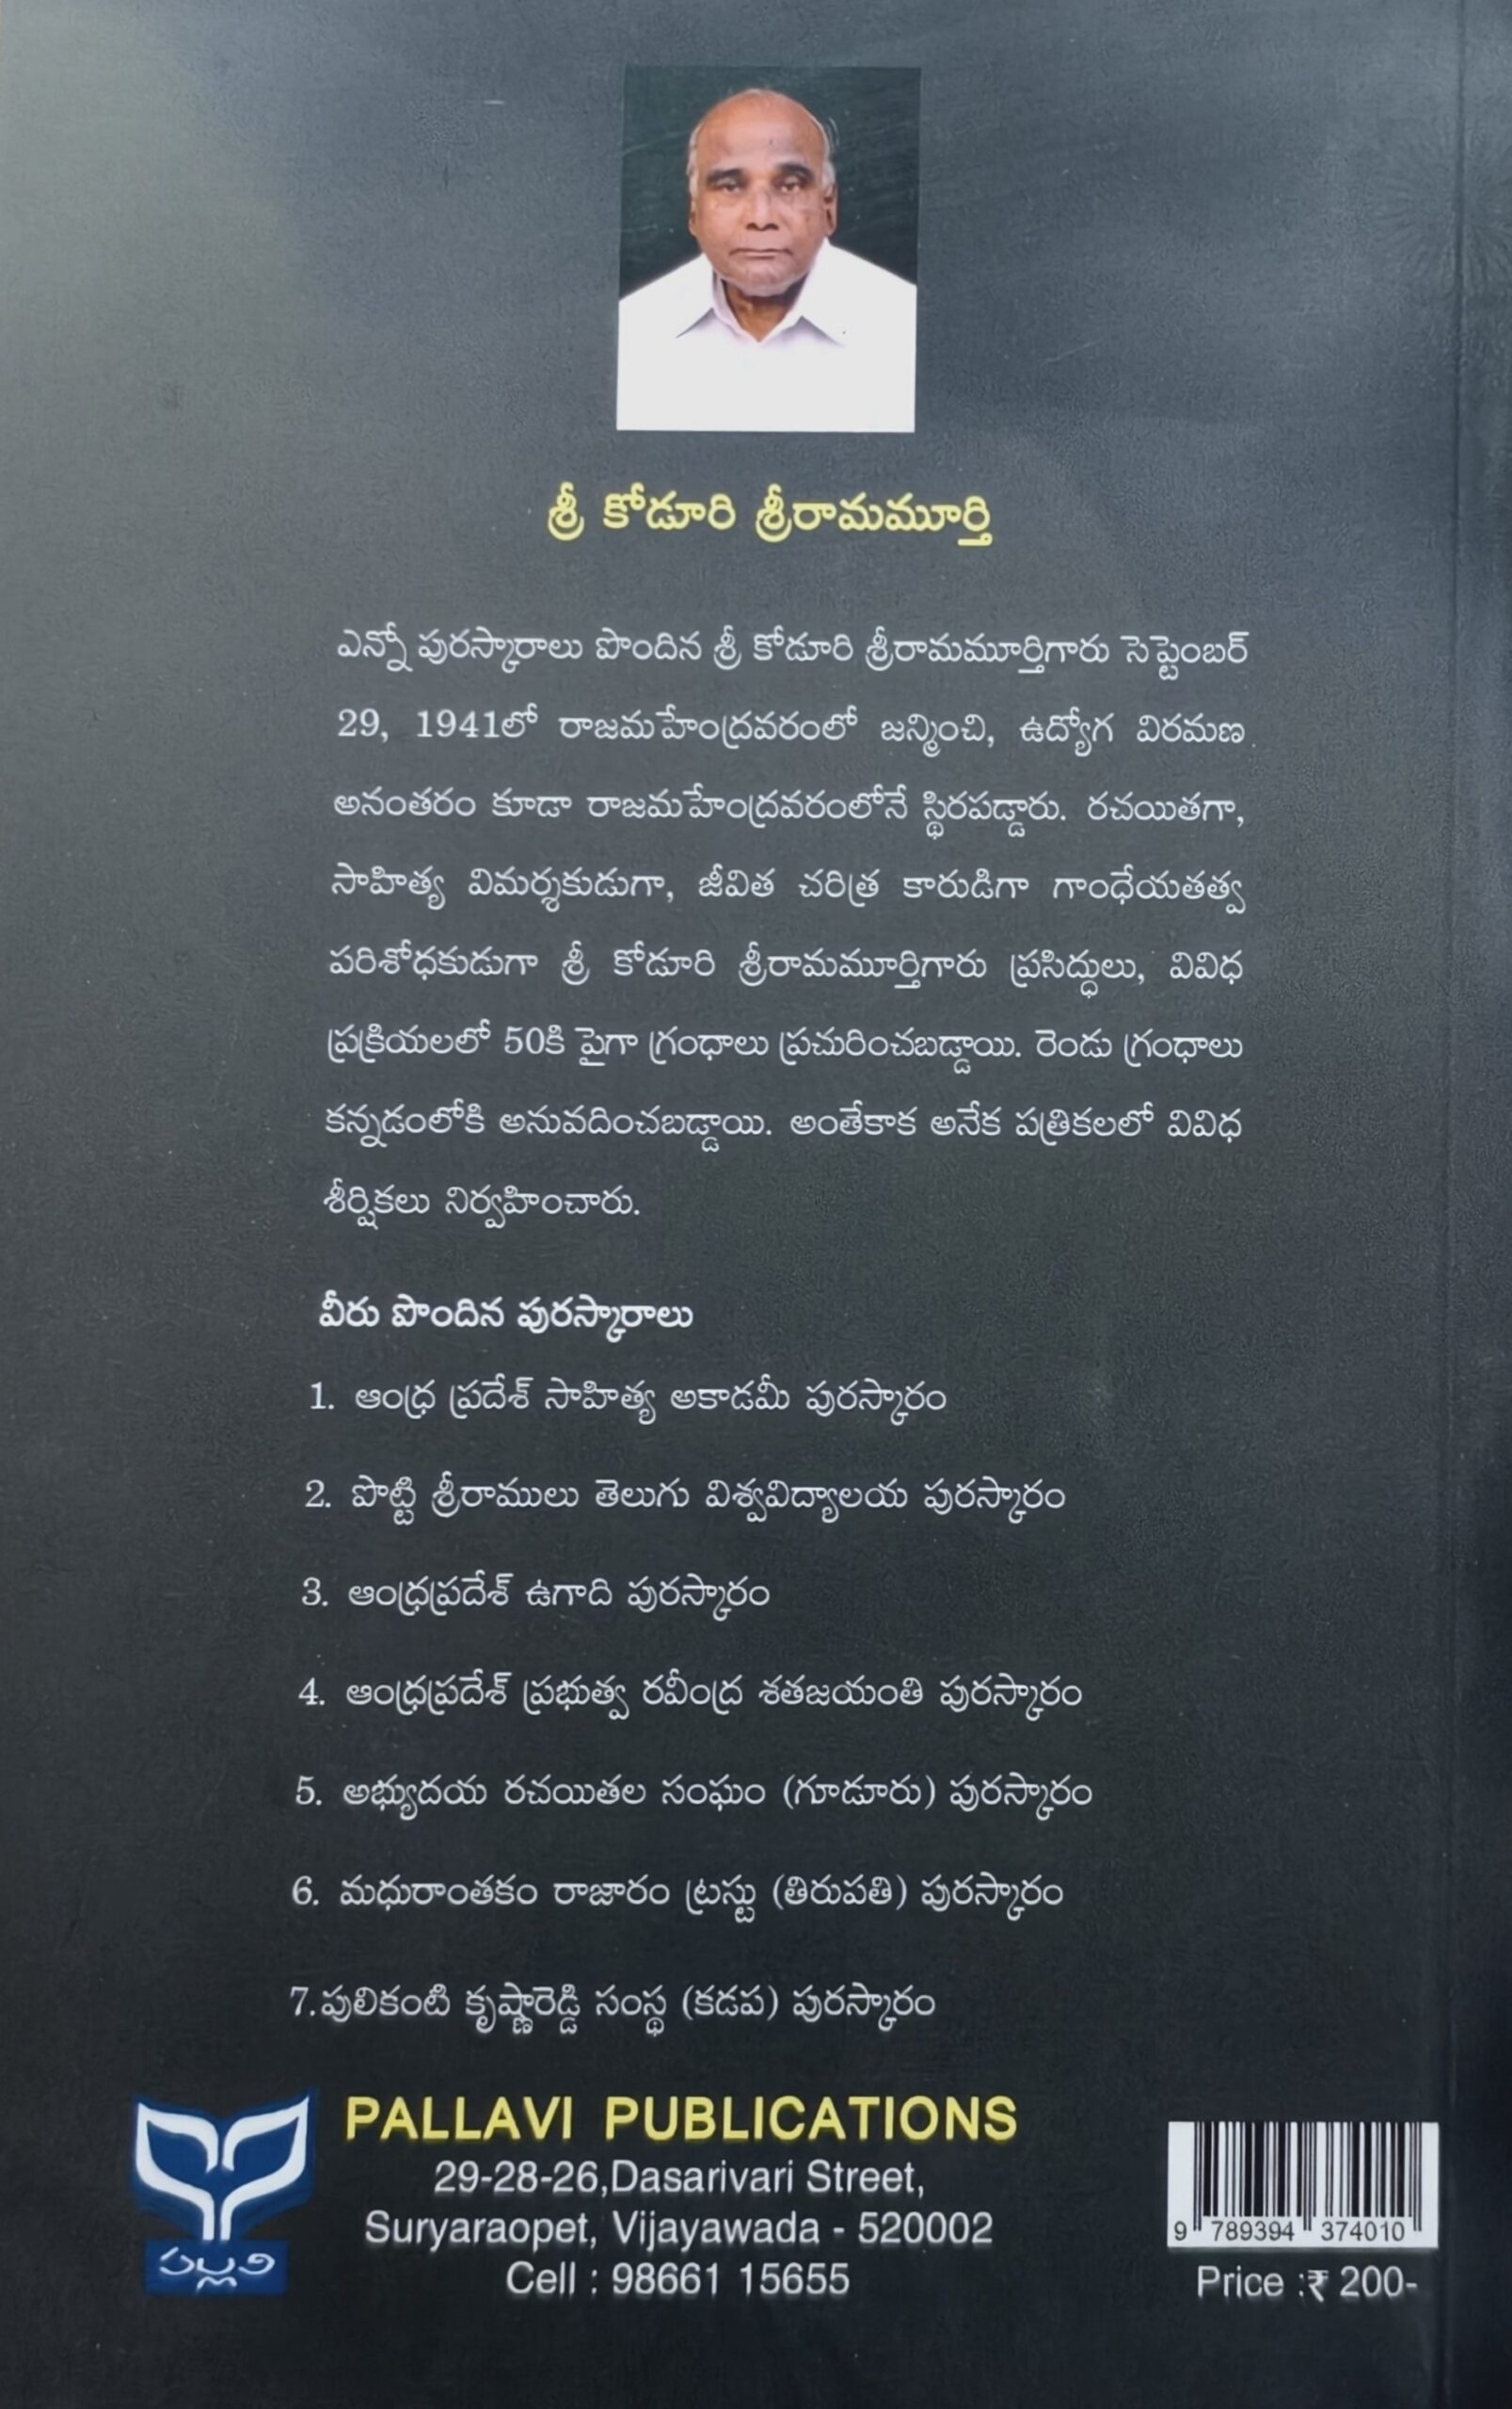 శ్రీ కోడూరి శ్రీరామమూర్తి
ఎన్నో పురస్కారాలు పొందిన శ్రీ కోడూరి శ్రీరామమూర్తిగారు సెప్టెంబర్
29, 1941లో రాజమహేంద్రవరంలో జన్మించి, ఉద్యోగ విరమణ
అనంతరం కూడా రాజమహేంద్రవరంలోనే స్థిరపడ్డారు. రచయితగా,
సాహిత్య విమర్శకుడుగా, జీవిత చరిత్ర కారుడిగా గాంధేయతత్వ
పరిశోధకుడుగా శ్రీ కోడూరి శ్రీరామమూర్తిగారు ప్రసిద్ధులు, వివిధ
ప్రక్రియలలో 50కి పైగా గ్రంథాలు ప్రచురించబడ్డాయి. రెండు గ్రంథాలు
కన్నడంలోకి అనువదించబడ్డాయి. అంతేకాక అనేక పత్రికలలో వివిధ
శీర్షికలు నిర్వహించారు.
వీరు పొందిన పురస్కారాలు
1. ఆంధ్ర ప్రదేశ్ సాహిత్య అకాడమీ పురస్కారం
2. పొట్టి శ్రీరాములు తెలుగు విశ్వవిద్యాలయ పురస్కారం
3. ఆంధ్రప్రదేశ్ ఉగాది పురస్కారం
4. ఆంధ్రప్రదేశ్ ప్రభుత్వ రవీంద్ర శతజయంతి పురస్కారం
5. అభ్యుదయ రచయితల సంఘం (గూడూరు) పురస్కారం
6. మధురాంతకం రాజారం ట్రస్టు (తిరుపతి) పురస్కారం
7.పులికంటి కృష్ణారెడ్డి సంస్థ (కడప) పురస్కారం
పల్లవి
PALLAVI PUBLICATIONS
29-28-26,Dasarivari Street,
Suryaraopet, Vijayawada - 520002
Cell : 98661 15655
9 789394 374010
Price :₹ 200-